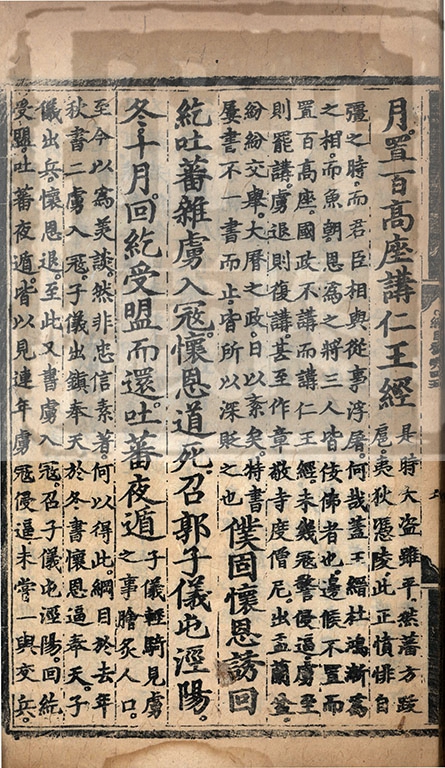 月。置百高座講仁王經
是時大盜雖平。然蕃方跋
扈。夷狄憑陵。此正憤悱自
彊之時。而君臣相與從事浮屠。何哉。蓋王縉杜鴻漸為
之相。而魚朝恩為之將。三人皆佞佛者也。邊候不置而
置百高座。國政不講而講仁王經。未幾冦警侵逼。虜至
則罷講。虜退則復講。甚至作章敬寺。度僧尼。出盂蘭盆。
紛紛交舉。大曆之政日以紊矣。特書
屢書不一書而止。皆所以深貶之也
僕固懷恩誘回
紇吐蕃雜虜入冦。懷恩道死。召郭子儀屯涇陽。
冬。十月。回紇受盟而還。吐蕃夜遁
子儀輕騎見虜
之事膾炙人口。
至今以為美談。然非忠信素著。何以得此。綱目於去年
秋書二虜入冦。子儀出鎮奉天。於冬書懷恩逼奉天。子
儀出兵。懷恩退。至此又書虜入冦。召子儀屯涇陽。回紇
受盟。吐蕃夜遁。皆以見連年虜冦侵逼。未嘗一與交兵。